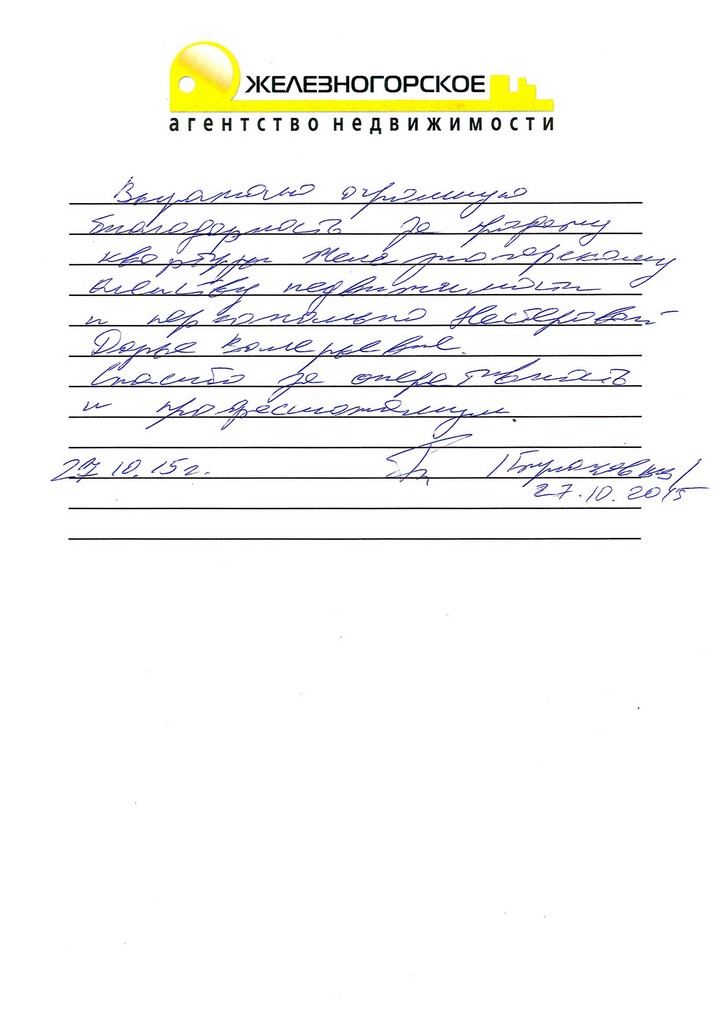 ЖЕЛЕЗНОГОРСКОЕ
агентство недвижимости
Выражаю огромную
благодарность за продажу
квартиры Железногорскому
агентству недвижимости
и персонально Нестеровой
Дарье Валерьевне.
Спасибо за оперативность
и профессионализм.
27.10.15г.
27.10.2015